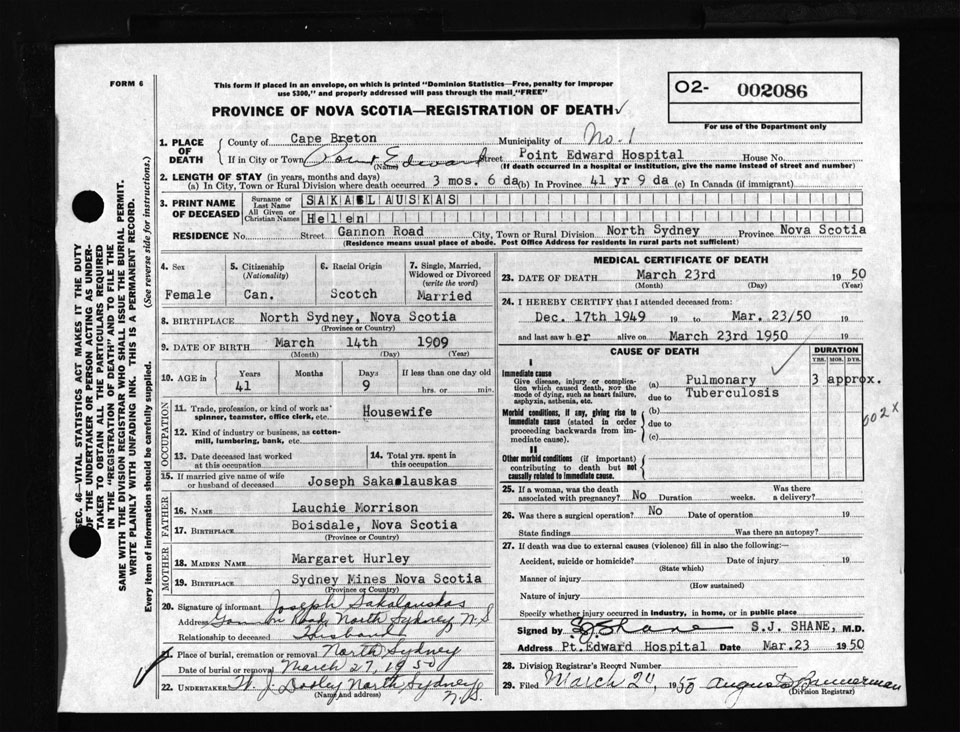 FORM 6
This form if placed in an envelope, on which is printed "Dominion Statistics—Free, penalty for improper
use $300," and properly addressed will pass through the mail "FREE"
PROVINCE OF NOVA SCOTIA—REGISTRATION OF DEATH
O2- 002086
For use of the Department only
1. PLACE OF DEATH
County of Cape Breton Municipality of No. 1
If in City or Town Point Edward Street Point Edward Hospital House No.
(Name) (If death occurred in a hospital or institution, give the name instead of street and number)
2. LENGTH OF STAY (in years, months and days)
(a) In City, Town or Rural Division where death occurred 3 mos. 6 da (b) In Province 41 yr 9 da (c) In Canada (if immigrant)
3. PRINT NAME OF DECEASED
Surname or Last Name SAKALAUSKAS
All Given or Christian Names Helen
RESIDENCE No. Street Gannon Road City, Town or Rural Division North Sydney Province Nova Scotia
(Residence means usual place of abode. Post Office Address for residents in rural parts not sufficient)
4. Sex
Female
5. Citizenship (Nationality)
Can.
6. Racial Origin
Scotch
7. Single, Married, Widowed or Divorced (write the word)
Married
8. BIRTHPLACE North Sydney, Nova Scotia
(Province or Country)
9. DATE OF BIRTH March 14th 1909
(Month) (Day) (Year)
10. AGE in Years Months Days If less than one day old
41 9 hrs. or min.
OCCUPATION
11. Trade, profession, or kind of work as spinner, teamster, office clerk, etc. Housewife
12. Kind of industry or business, as cotton-mill, lumbering, bank, etc.
13. Date deceased last worked at this occupation
14. Total yrs. spent in this occupation
15. If married give name of wife or husband of deceased Joseph Sakalauskas
FATHER
16. NAME Lauchie Morrison
17. BIRTHPLACE Boisdale, Nova Scotia
(Province or Country)
MOTHER
18. MAIDEN NAME Margaret Hurley
19. BIRTHPLACE Sydney Mines Nova Scotia
(Province or Country)
20. Signature of informant Joseph Sakalauskas
Address Gannon Road, North Sydney N.S
Relationship to deceased Husband
21. Place of burial, cremation or removal North Sydney
Date of burial or removal March 27, 1950
22. UNDERTAKER W. J. Dooley North Sydney N.S.
(Name and address)
MEDICAL CERTIFICATE OF DEATH
23. DATE OF DEATH March 23rd 1950
(Month) (Day) (Year)
24. I HEREBY CERTIFY that I attended deceased from:
Dec. 17th 1949 19 to Mar. 23/50 19
and last saw her alive on March 23rd 1950 19
CAUSE OF DEATH
DURATION
YRS. MOS. DYS.
I
Immediate cause
Give disease, injury or complication which caused death, NOT the mode of dying, such as heart failure, asphyxia, asthenia, etc.
(a) Pulmonary
due to Tuberculosis
3 approx.
002 x
Morbid conditions, if any, giving rise to immediate cause (stated in order proceeding backwards from immediate cause).
(b)
due to
(c)
II
Other morbid conditions (if important) contributing to death but not causally related to immediate cause.
25. If a woman, was the death associated with pregnancy? No Duration weeks. Was there a delivery?
26. Was there a surgical operation? No Date of operation 19
State findings Was there an autopsy?
27. If death was due to external causes (violence) fill in also the following:—
Accident, suicide or homicide? Date of injury 19
(State which)
Manner of injury
(How sustained)
Nature of injury
Specify whether injury occurred in industry, in home, or in public place
Signed by S.J. Shane S.J. SHANE, M.D.
Address Pt. Edward Hospital Date Mar.23 1950
28. Division Registrar's Record Number
29. Filed March 1950 Bannerman
(Division Registrar)
SEC. 46—VITAL STATISTICS ACT MAKES IT THE DUTY
OF THE UNDERTAKER OR PERSON ACTING AS UNDER-
TAKER TO OBTAIN ALL THE PARTICULARS REQUIRED
IN THE "REGISTRATION OF DEATH" AND TO FILE THE
SAME WITH THE DIVISION REGISTRAR WHO SHALL ISSUE THE BURIAL PERMIT.
WRITE PLAINLY WITH UNFADING INK. THIS IS A PERMANENT RECORD.
Every item of information should be carefully supplied. (See reverse side for instructions.)